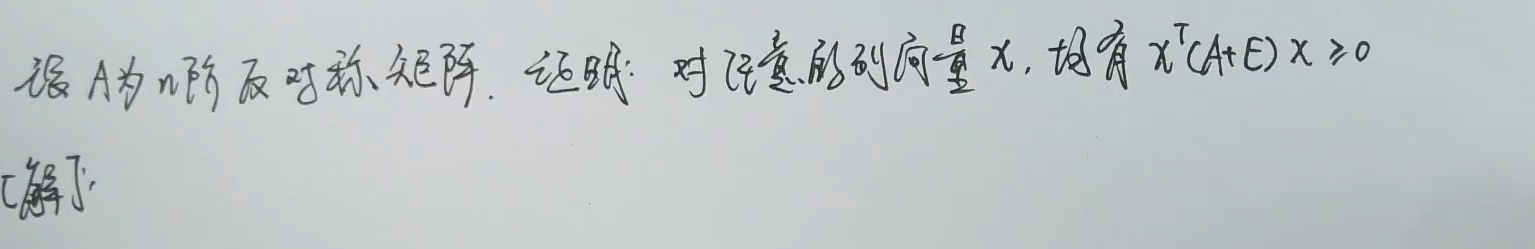 设A为n阶反对称矩阵.证明:对任意的列向量x,均有x^T(A+E)x≥0
[解]: